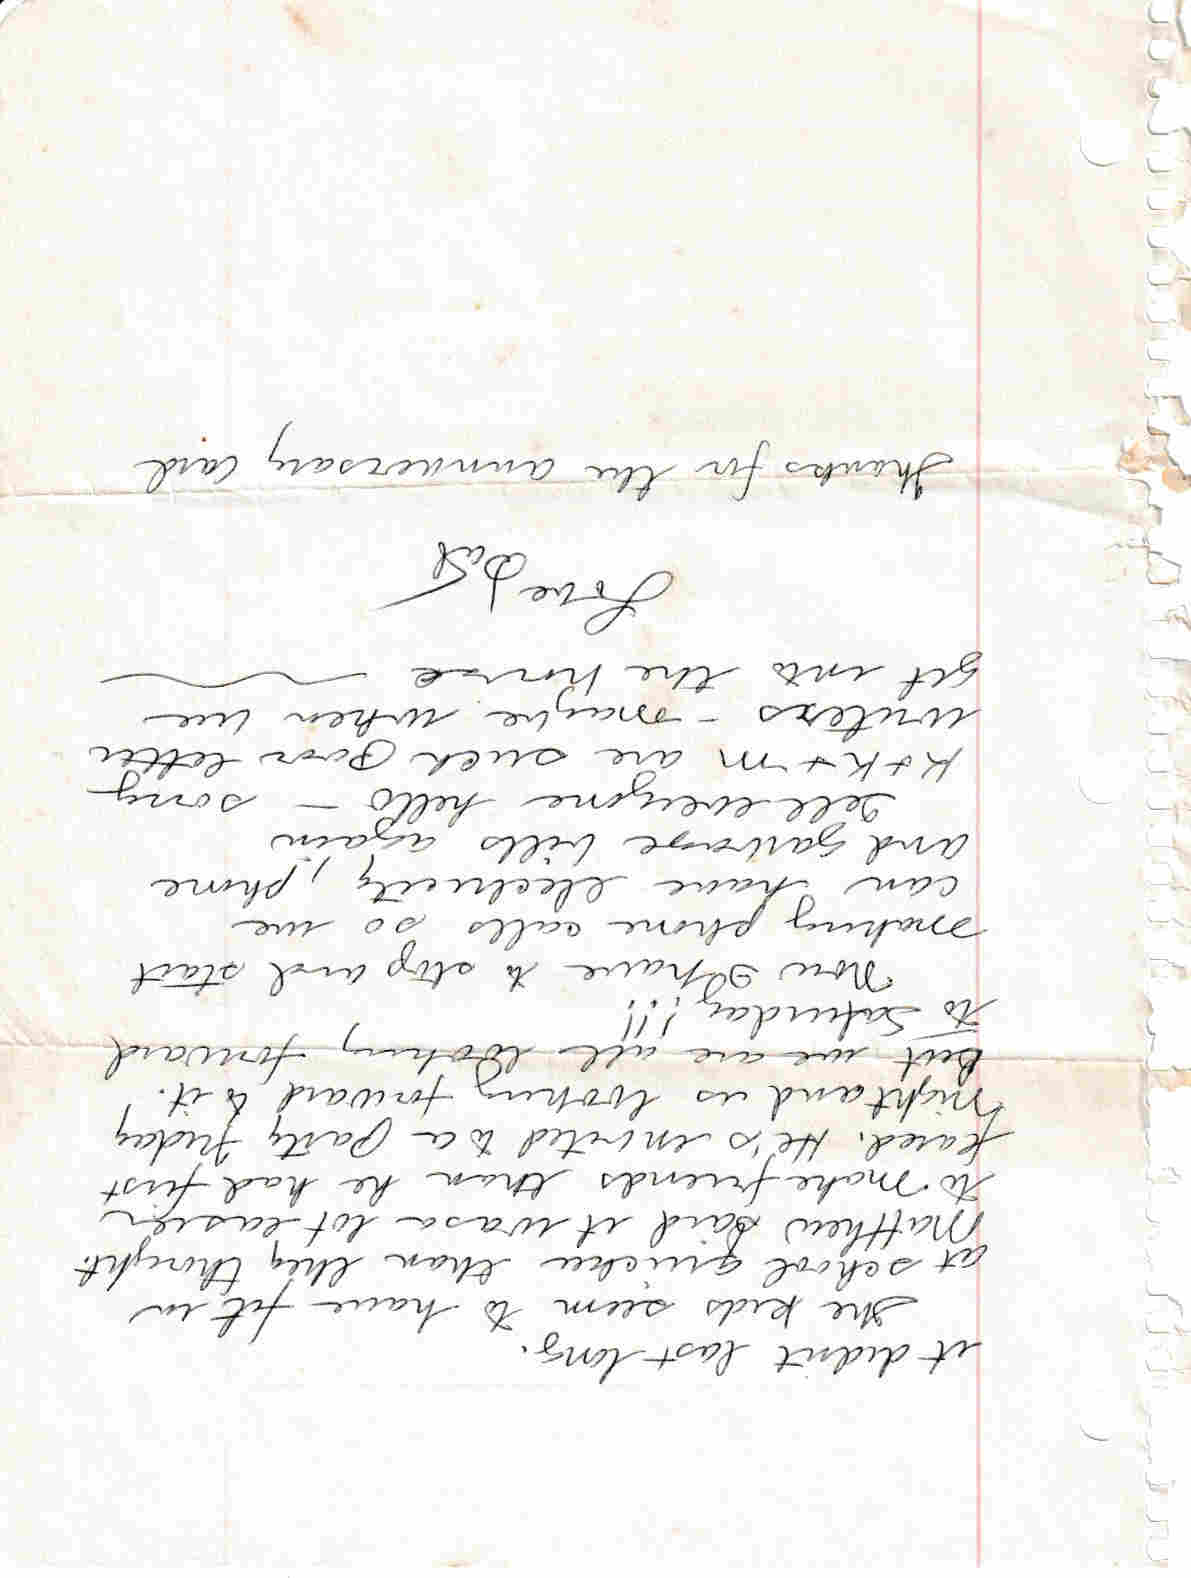 it didn't last long.
The kids seem to have fit in
at school quicker than they thought.
Matthew said it was a lot easier
to make friends than he had first
feared. He's invited to a party friday
night and is looking forward to it.
But we are all looking forward
to Saturday!!!
Now I have to stop and start
making phone calls so we
can have electricity, phone
and garbage bills again
Tell everyone hello – sorry
K + K + M are such poor letter
writers – maybe when we
get into the house
Love,
Thanks for the anniversary card